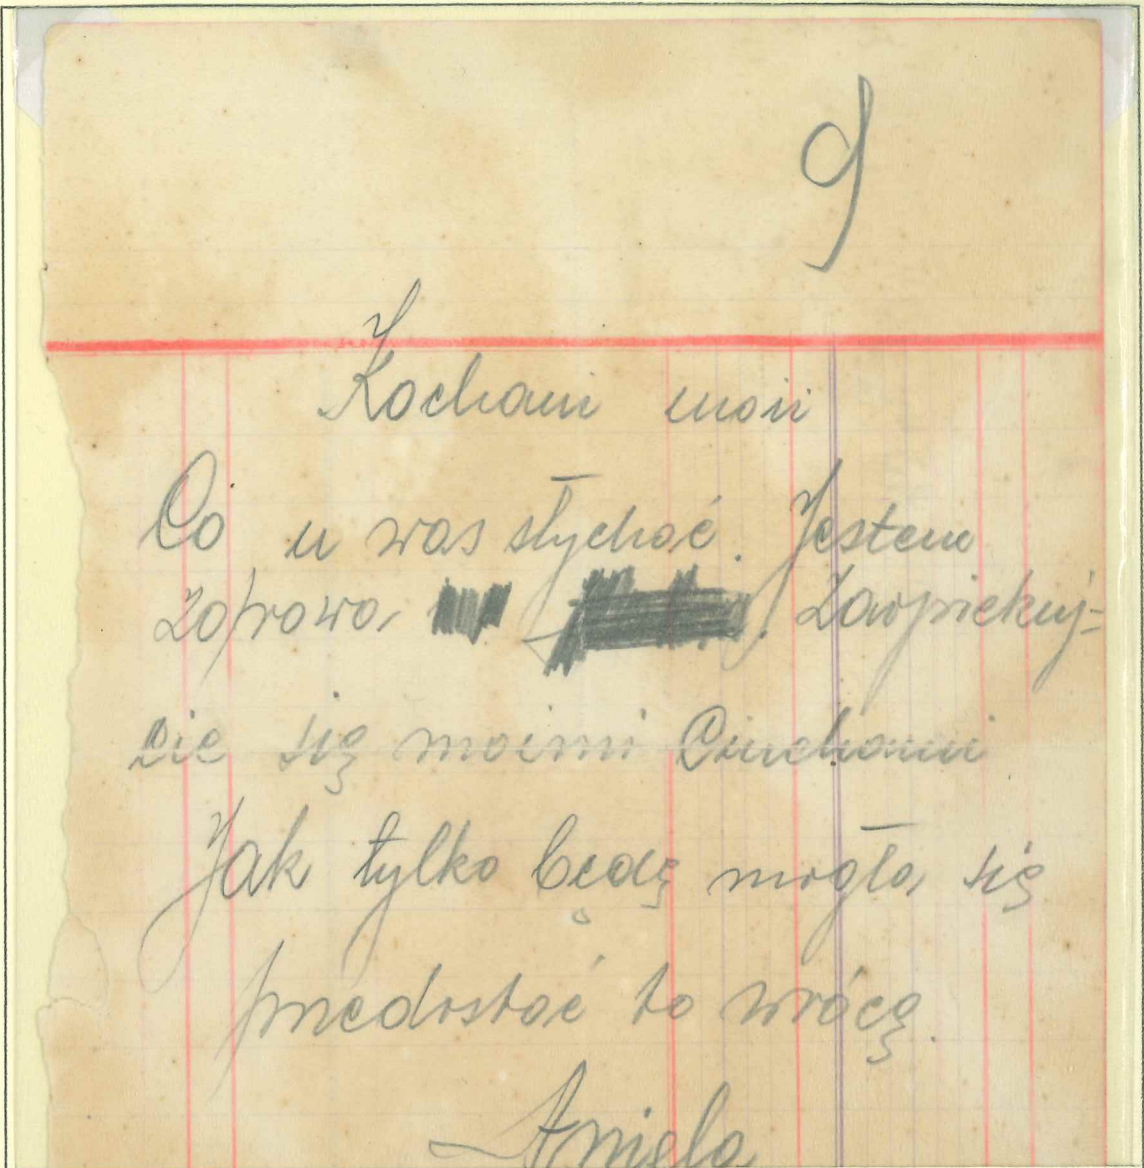 9
Kochani moi
Co u was słychać. Jestem
zdrowa. Zaopiekuj=
cie się moimi Ciuchami
Jak tylko będę mogła się
przedostać to wrócę.
Aniela